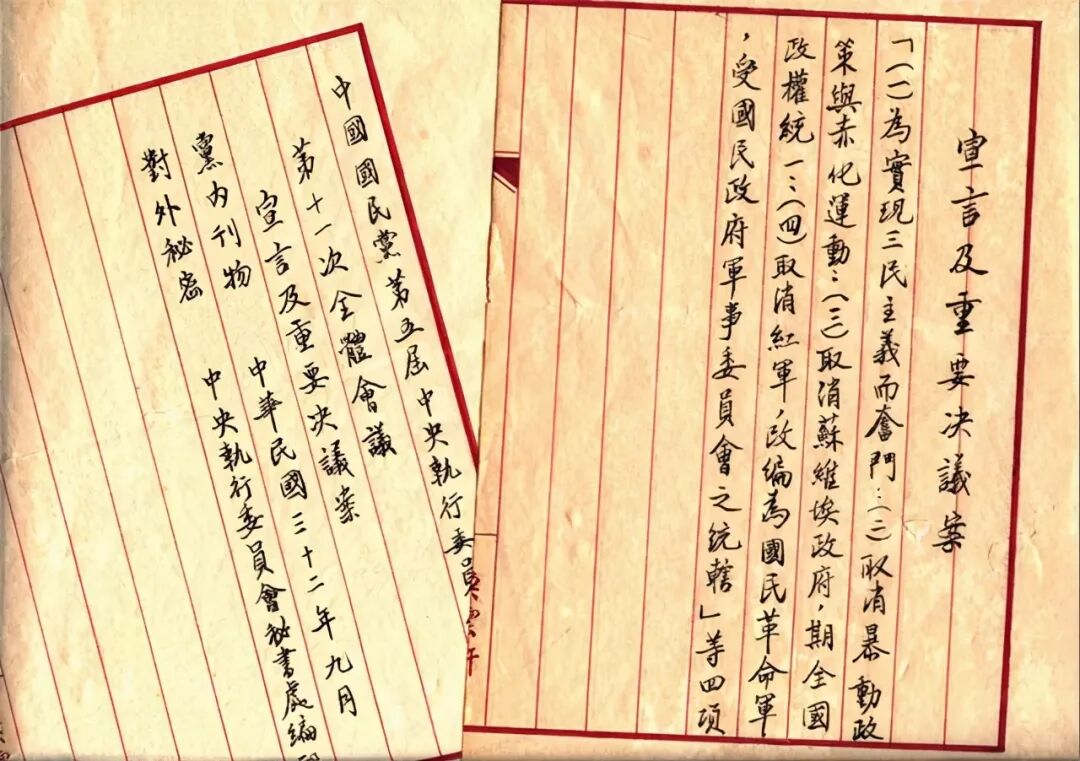 宣言及重要決議案
「(一)為實現三民主義而奮鬥：(二)取消暴動政
策與赤化運動：(三)取消蘇維埃政府，期全國
政權統一：(四)取消紅軍，改編為國民革命軍
，受國民政府軍事委員會之統轄」等四項
中國國民黨第五屆中央執行委員
第十一次全體會議
宣言及重要決議案
中華民國三十二年九月
黨內刊物
中央執行委員會秘書處編
對外秘密